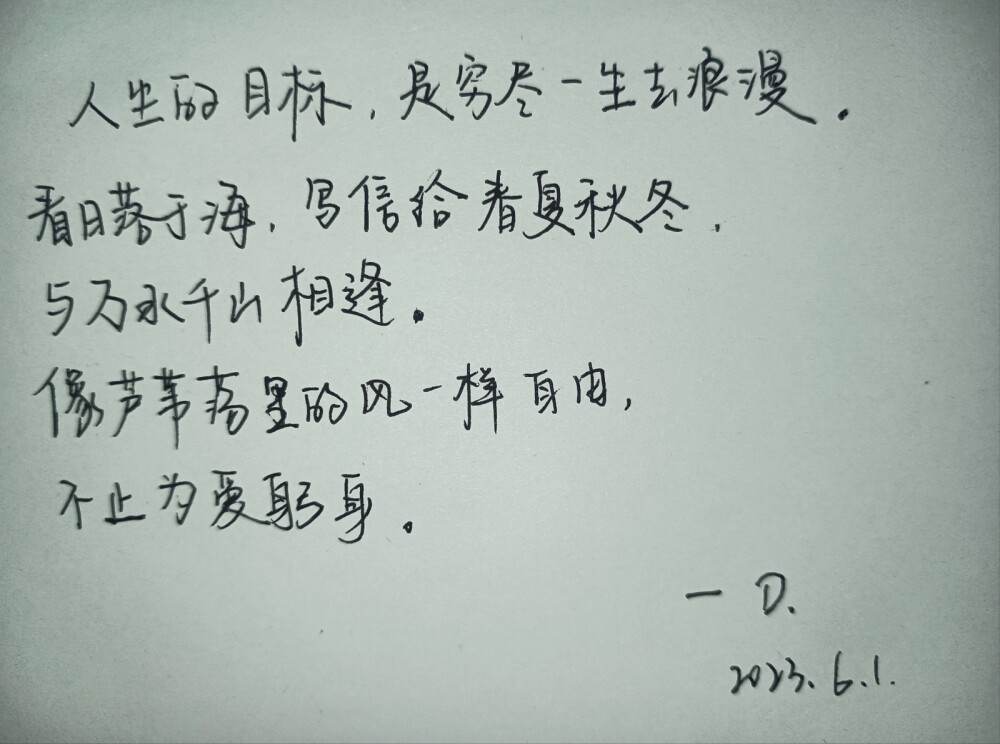 人生的目标，是穷尽一生去浪漫.
看日落于海，写信给春夏秋冬，
与万水千山相逢.
像芦苇荡里的风一样自由，
不止为爱躬身。
— D.
2023.6.1.